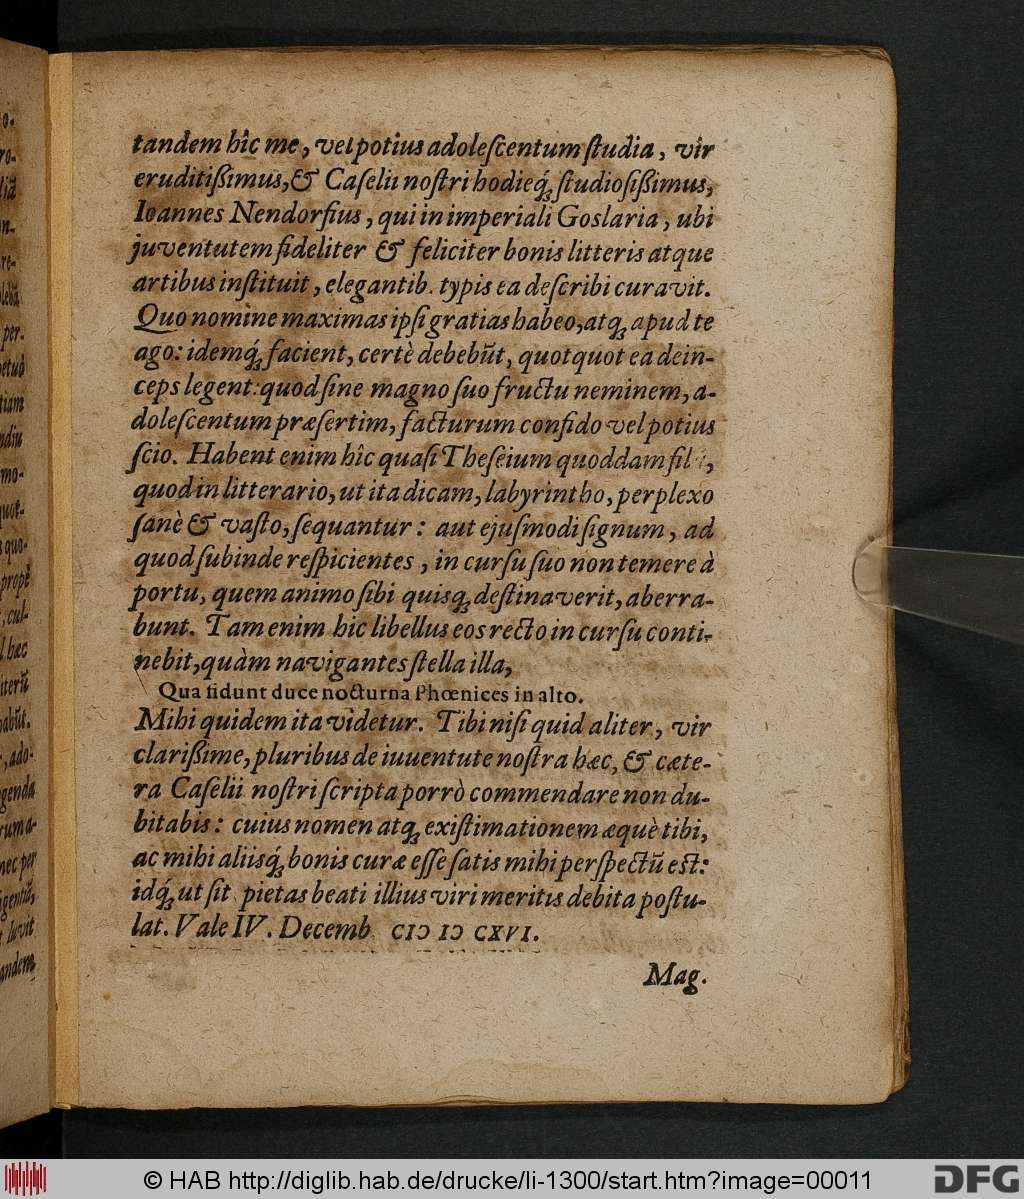 tandem hîc me, vel potius adolescentum studia, vir
eruditißimus, & Caselii nostri hodieq́; studiosißimus,
Ioannes Nendorfius, qui in imperiali Goslaria, ubi
juventutem fideliter & feliciter bonis litteris atque
artibus instituit, elegantib. typis ea describi curavit.
Quo nomine maximas ipsi gratias habeo, atq; apud te
ago: idemq́; facient, certè debebūt, quotquot ea dein-
ceps legent: quod sine magno suo fructu neminem, a-
dolescentum præsertim, facturum confido vel potius
scio. Habent enim hîc quasi Theseium quoddam
quod in litterario, ut ita dicam, labyrintho, perplexo
sanè & vasto, sequantur: aut ejusmodi signum, ad
quod subinde respicientes, in cursu suo non temere à
portu, quem animo sibi quisq; destinaverit, aberra-
bunt. Tam enim hic libellus eos recto in cursu conti-
nebit, quàm navigantes stella illa,
Qua fidunt duce nocturna Phœnices in alto.
Mihi quidem ita videtur. Tibi nisi quid aliter, vir
clarißime, pluribus de iuuentute nostra hæc, & cæte-
ra Caselii nostri scripta porrò commendare non du-
bitabis: cuius nomen atq; existimationem æquè tibi,
ac mihi aliisq́; bonis curæ esse satis mihi perspectū est:
idq́; ut sit pietas beati illius viri meritis debita postu-
lat. Vale IV. Decemb CIↃ IↃ CXVI.
Mag.
© HAB http://diglib.hab.de/drucke/li-1300/start.htm?image=00011
DFG